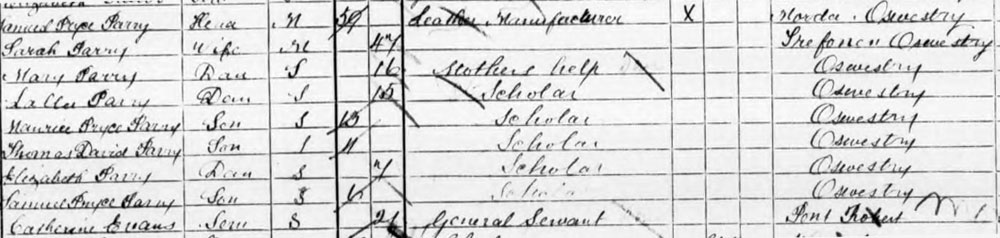 Samuel Pryce Parry Head M 59 Leather Manufacturer X Morda Oswestry
Sarah Parry Wife M 47 Trefonen Oswestry
Mary Parry Dau S 16 Mothers help Oswestry
Lallu Parry Dau S 15 Scholar Oswestry
Maurice Pryce Parry Son S 13 Scholar Oswestry
Thomas David Parry Son S 11 Scholar Oswestry
Elizabeth Parry Dau S 7 Scholar Oswestry
Samuel Pryce Parry Son S 6 Scholar Oswestry
Catherine Evans Serv S 21 General Servant Pont Robert